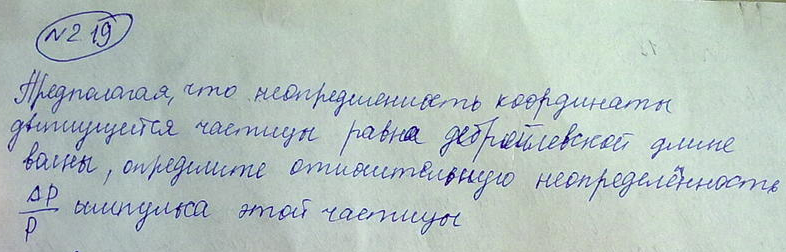 №2 19
Предполагая, что неопределенность координаты
движущейся частицы равна дебройлевской длине
волны, определите относительную неопределённость
ΔP/P импульса этой частицы